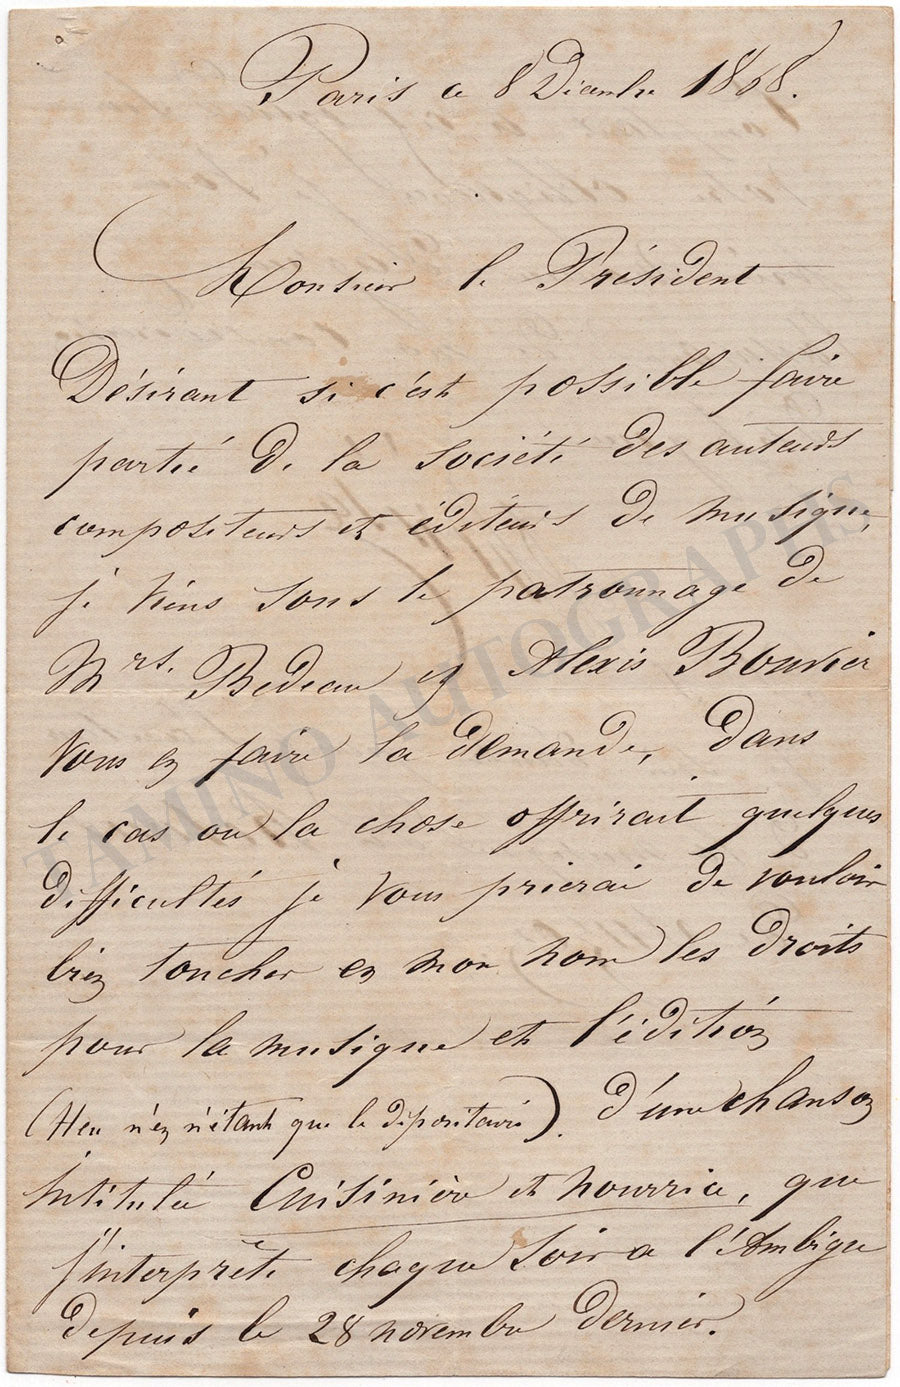 Paris ce 8 Décembre 1868.
Monsieur le Président
Désirant si c'est possible faire
partie de la société des auteurs
compositeurs et éditeurs de musique,
je viens sous le patronnage de
Mrs. Bedeau et Alexis Bouvier
vous en faire la demande, dans
le cas ou la chose offrirait quelques
difficultés je vous prierai de vouloir
bien toucher en mon nom les droits
pour la musique et l'édition
(Heu n'en n'étant que le dépositaire). d'une chanson
intitulée Cuisinière et nourrice, que
j'interprête chaque soir a l'Ambigu
depuis le 28 novembre dernier.
TAMINO AUTOGRAPHS